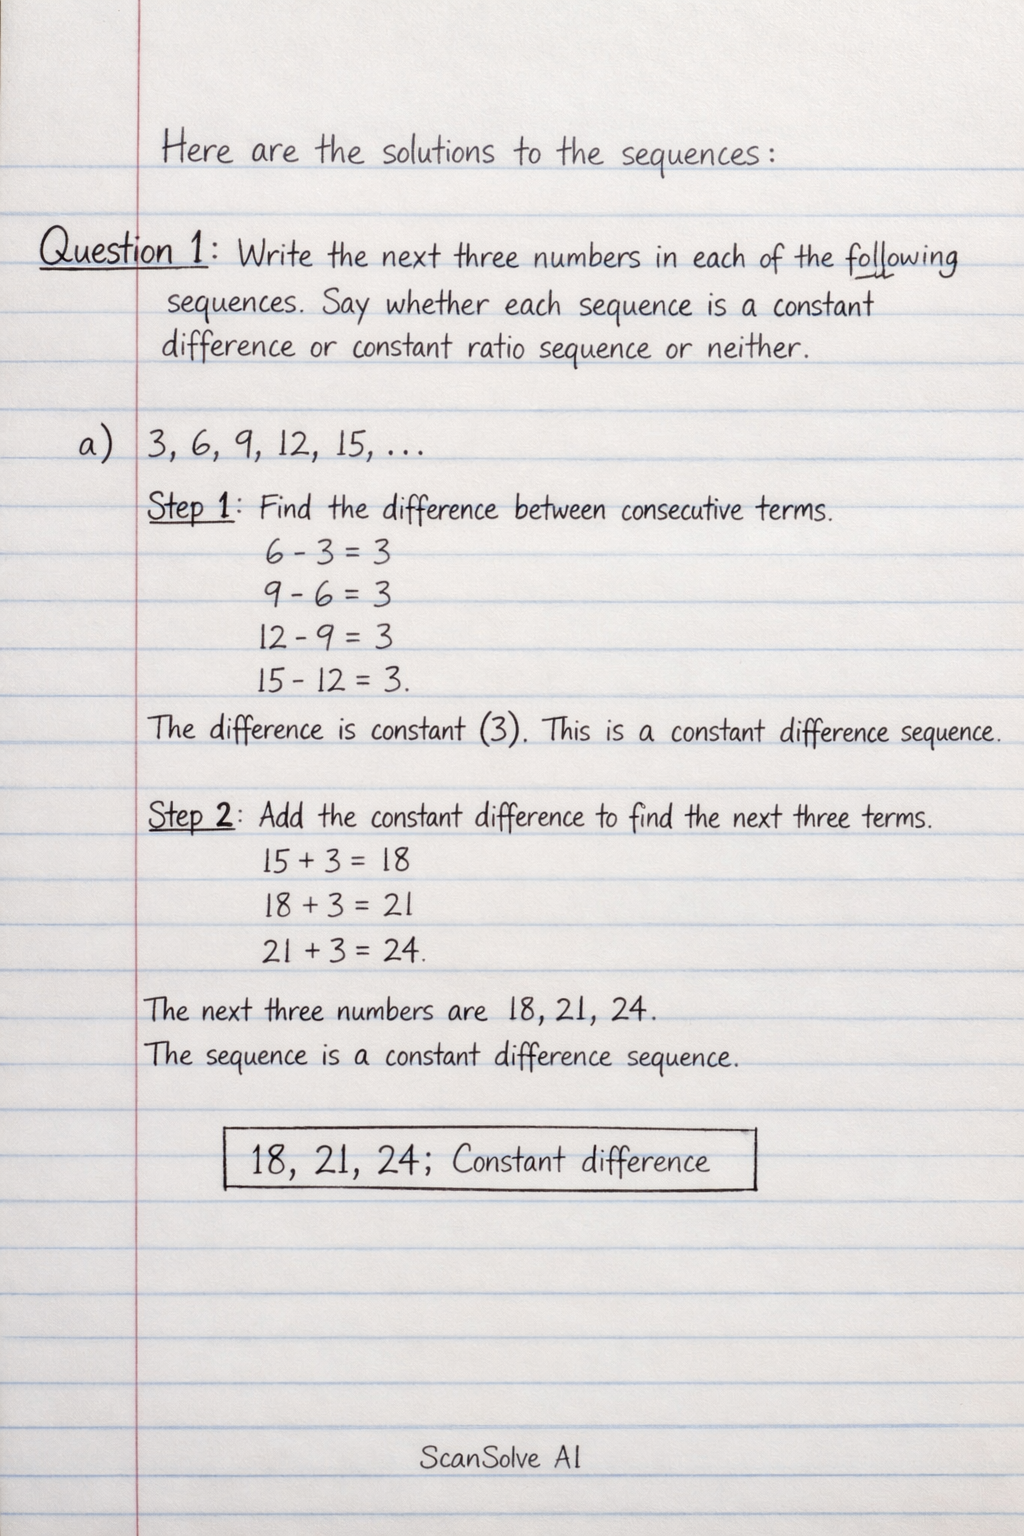 Here are the solutions to the sequences:
Question 1: Write the next three numbers in each of the following
sequences. Say whether each sequence is a constant
difference or constant ratio sequence or neither.
a) 3, 6, 9, 12, 15, ...
Step 1: Find the difference between consecutive terms.
6 - 3 = 3
9 - 6 = 3
12 - 9 = 3
15 - 12 = 3.
The difference is constant (3). This is a constant difference sequence.
Step 2: Add the constant difference to find the next three terms.
15 + 3 = 18
18 + 3 = 21
21 + 3 = 24.
The next three numbers are 18, 21, 24.
The sequence is a constant difference sequence.
18, 21, 24; Constant difference
ScanSolve AI